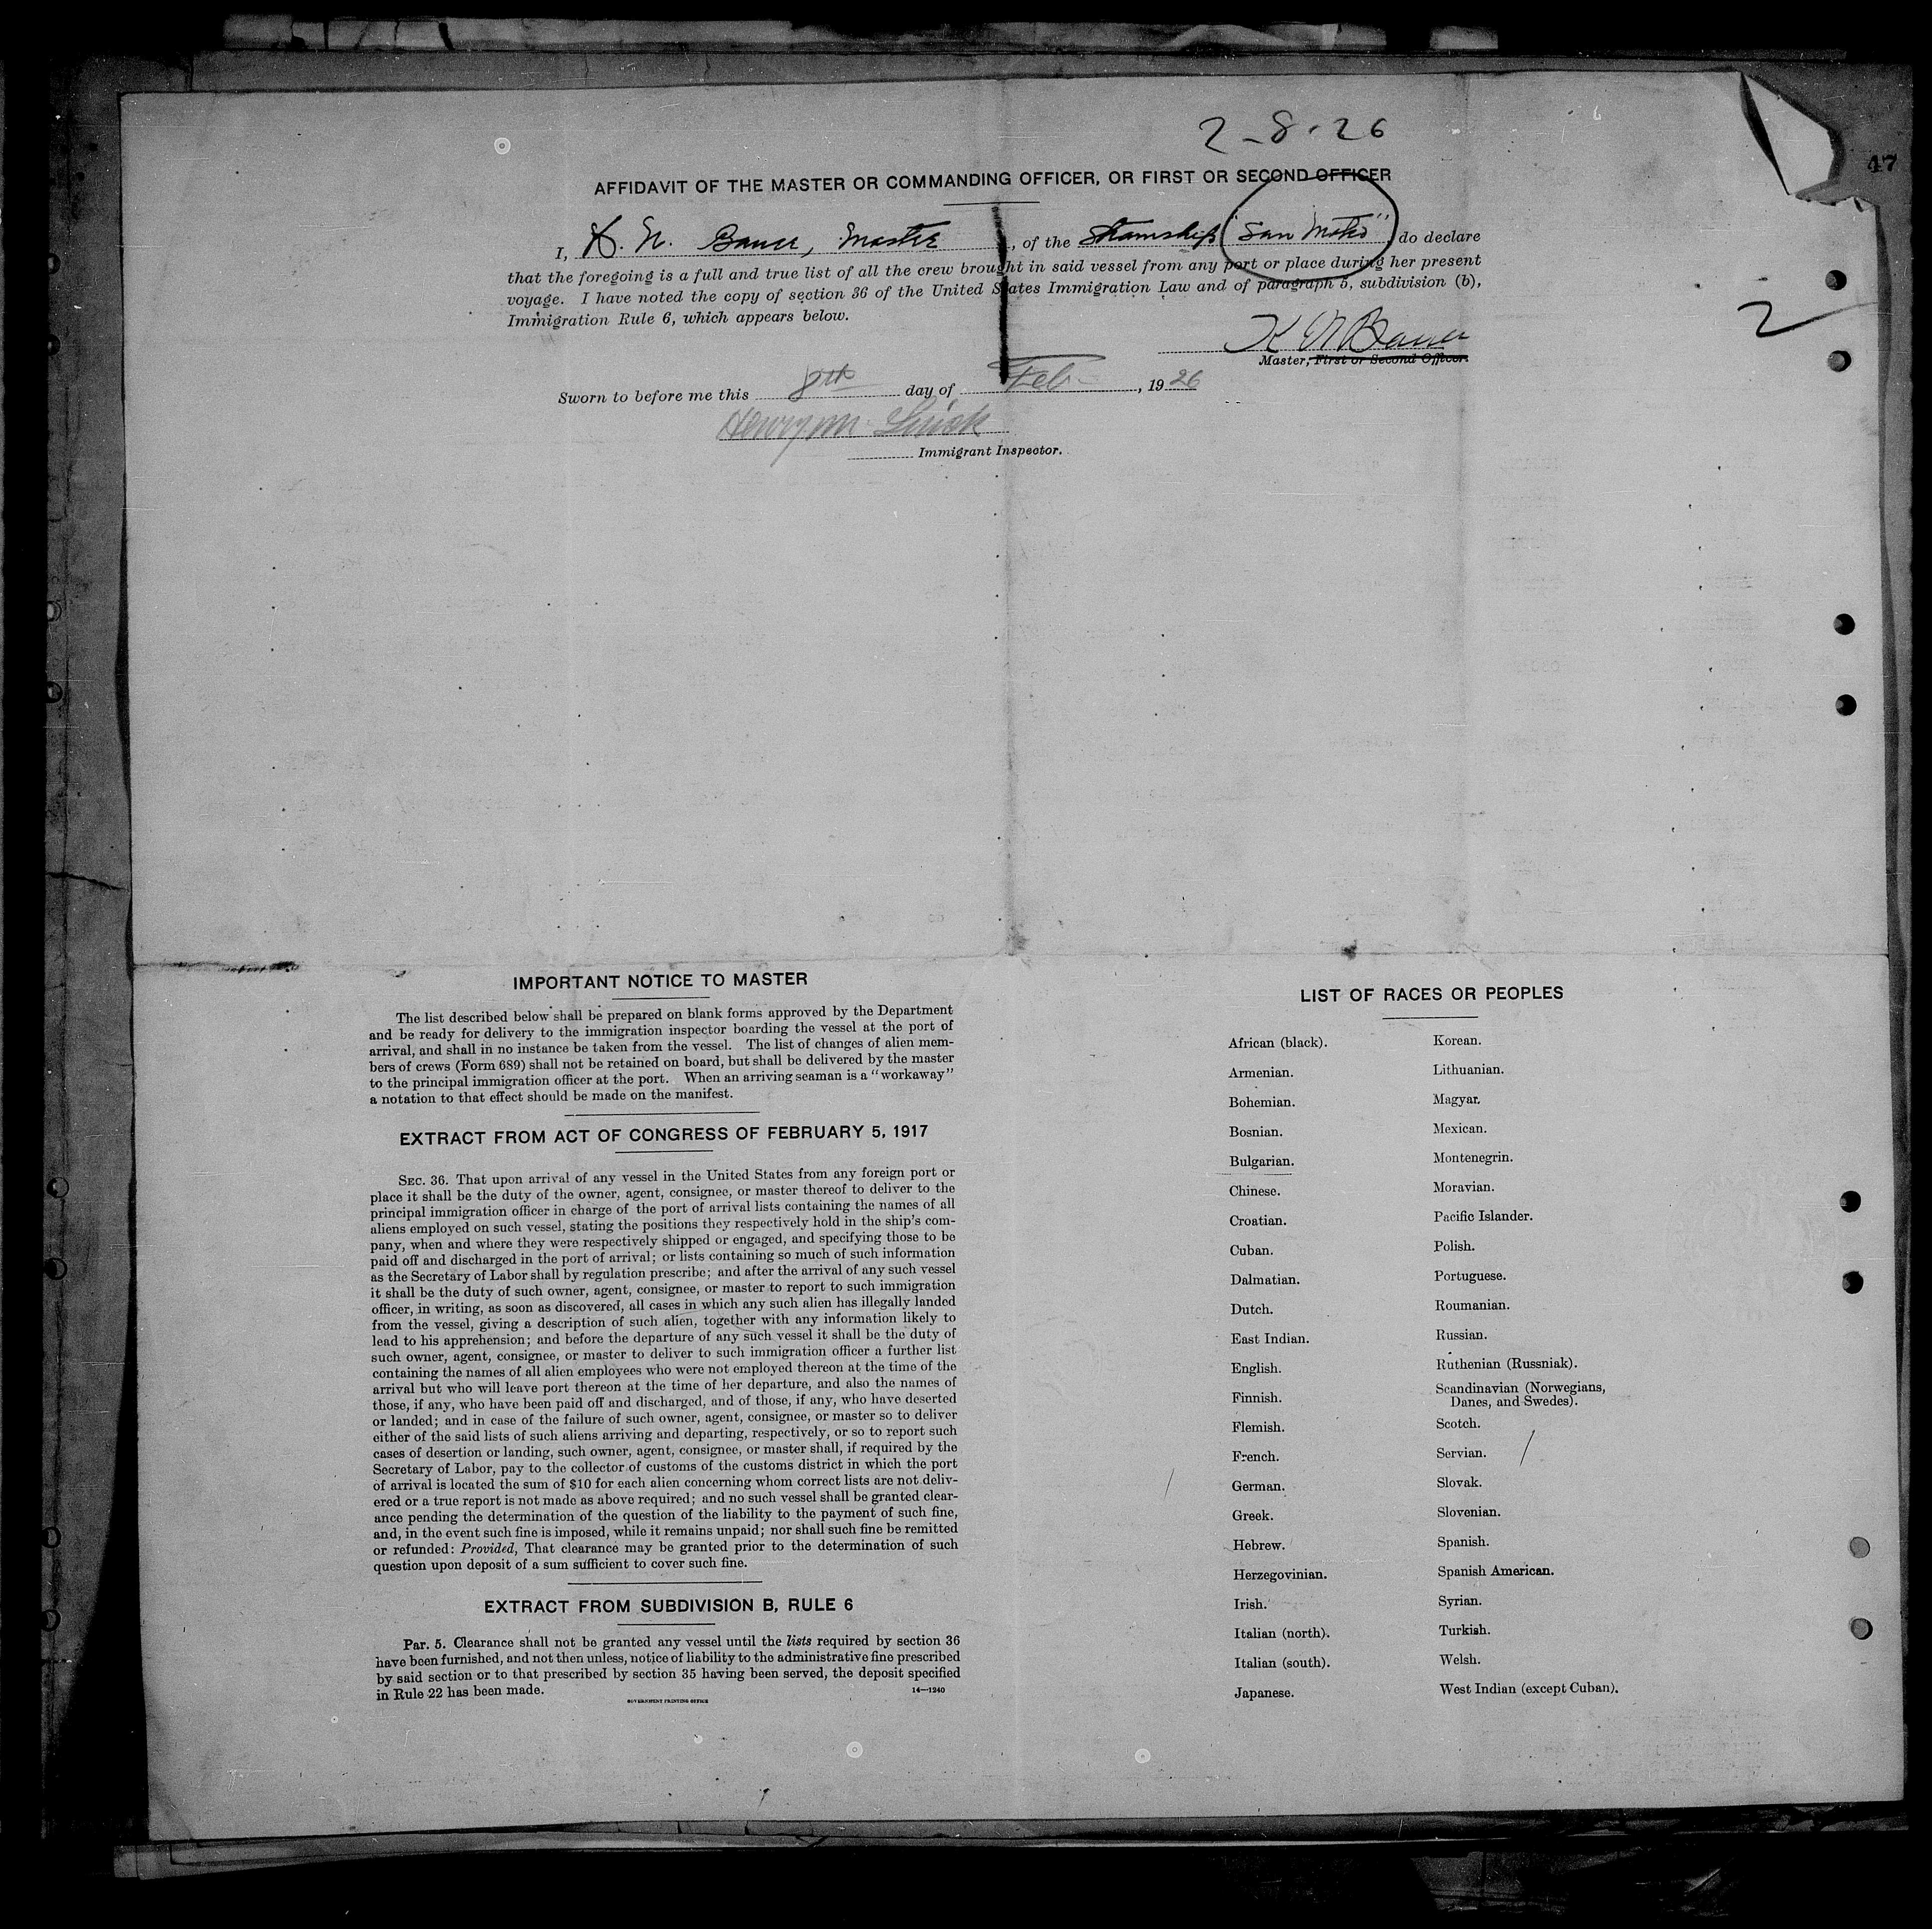 2-8-26
47
AFFIDAVIT OF THE MASTER OR COMMANDING OFFICER, OR FIRST OR SECOND OFFICER
I, K. N. Bauer, Master, of the Steamship "San Mateo" do declare
that the foregoing is a full and true list of all the crew brought in said vessel from any port or place during her present
voyage. I have noted the copy of section 36 of the United States Immigration Law and of paragraph 5, subdivision (b),
Immigration Rule 6, which appears below.
2
K N Bauer
Master, First or Second Officer.
Sworn to before me this 8th day of Feb, 1926
Henry M
Immigrant Inspector.
IMPORTANT NOTICE TO MASTER
The list described below shall be prepared on blank forms approved by the Department
and be ready for delivery to the immigration inspector boarding the vessel at the port of
arrival, and shall in no instance be taken from the vessel. The list of changes of alien mem-
bers of crews (Form 689) shall not be retained on board, but shall be delivered by the master
to the principal immigration officer at the port. When an arriving seaman is a "workaway"
a notation to that effect should be made on the manifest.
EXTRACT FROM ACT OF CONGRESS OF FEBRUARY 5, 1917
SEC. 36. That upon arrival of any vessel in the United States from any foreign port or
place it shall be the duty of the owner, agent, consignee, or master thereof to deliver to the
principal immigration officer in charge of the port of arrival lists containing the names of all
aliens employed on such vessel, stating the positions they respectively hold in the ship's com-
pany, when and where they were respectively shipped or engaged, and specifying those to be
paid off and discharged in the port of arrival; or lists containing so much of such information
as the Secretary of Labor shall by regulation prescribe; and after the arrival of any such vessel
it shall be the duty of such owner, agent, consignee, or master to report to such immigration
officer, in writing, as soon as discovered, all cases in which any such alien has illegally landed
from the vessel, giving a description of such alien, together with any information likely to
lead to his apprehension; and before the departure of any such vessel it shall be the duty of
such owner, agent, consignee, or master to deliver to such immigration officer a further list
containing the names of all alien employees who were not employed thereon at the time of the
arrival but who will leave port thereon at the time of her departure, and also the names of
those, if any, who have been paid off and discharged, and of those, if any, who have deserted
or landed; and in case of the failure of such owner, agent, consignee, or master so to deliver
either of the said lists of such aliens arriving and departing, respectively, or so to report such
cases of desertion or landing, such owner, agent, consignee, or master shall, if required by the
Secretary of Labor, pay to the collector of customs of the customs district in which the port
of arrival is located the sum of $10 for each alien concerning whom correct lists are not deliv-
ered or a true report is not made as above required; and no such vessel shall be granted clear-
ance pending the determination of the question of the liability to the payment of such fine,
and, in the event such fine is imposed, while it remains unpaid; nor shall such fine be remitted
or refunded: Provided, That clearance may be granted prior to the determination of such
question upon deposit of a sum sufficient to cover such fine.
EXTRACT FROM SUBDIVISION B, RULE 6
Par. 5. Clearance shall not be granted any vessel until the lists required by section 36
have been furnished, and not then unless, notice of liability to the administrative fine prescribed
by said section or to that prescribed by section 35 having been served, the deposit specified
in Rule 22 has been made.
GOVERNMENT PRINTING OFFICE
14—1240
LIST OF RACES OR PEOPLES
African (black).
Armenian.
Bohemian.
Bosnian.
Bulgarian.
Chinese.
Croatian.
Cuban.
Dalmatian.
Dutch.
East Indian.
English.
Finnish.
Flemish.
French.
German.
Greek.
Hebrew.
Herzegovinian.
Irish.
Italian (north).
Italian (south).
Japanese.
Korean.
Lithuanian.
Magyar.
Mexican.
Montenegrin.
Moravian.
Pacific Islander.
Polish.
Portuguese.
Roumanian.
Russian.
Ruthenian (Russniak).
Scandinavian (Norwegians,
Danes, and Swedes).
Scotch.
Servian.
Slovak.
Slovenian.
Spanish.
Spanish American.
Syrian.
Turkish.
Welsh.
West Indian (except Cuban).